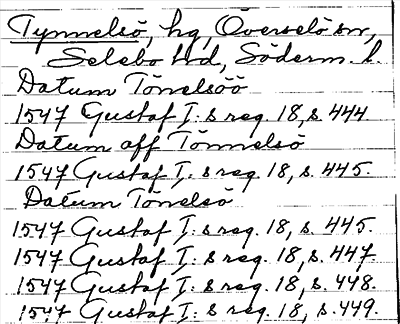 Tynnelsö, hg, Överselö sn,
Selebo hd, Söderm. l.
Datum Tönelsöö
1547 Gustaf I: s reg. 18, s. 444.
Datum aff Tönnelsö
1547 Gustaf I: s reg. 18, s. 445.
Datum Tönelsö
1547 Gustaf I: s reg. 18, s. 445.
1547 Gustaf I: s reg. 18, s. 447.
1547 Gustaf I: s reg. 18, s. 448.
1547 Gustaf I: s reg. 18, s. 449.